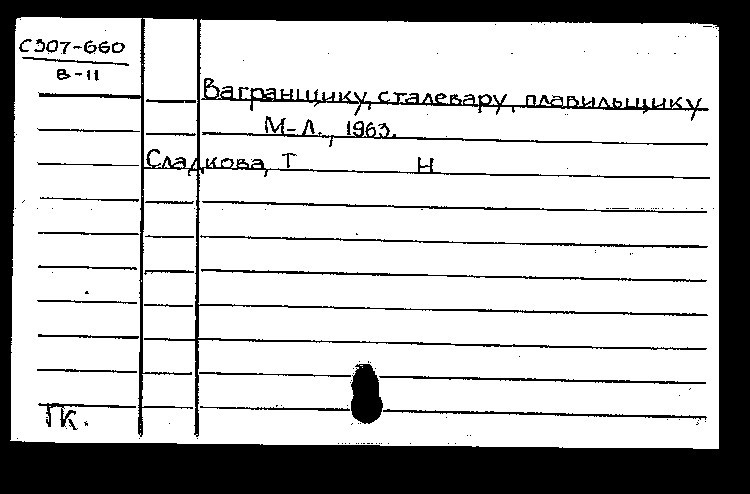 С307-660
В-11
Вагранщику, сталевару, плавильщику
М-Л., 1963.
Сладкова, Т Н
ГК.